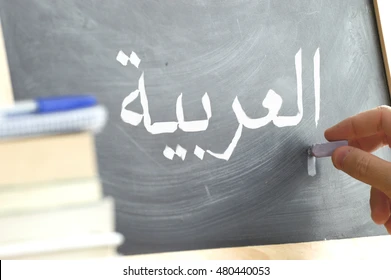 العربية
shutterstock.com · 480440053